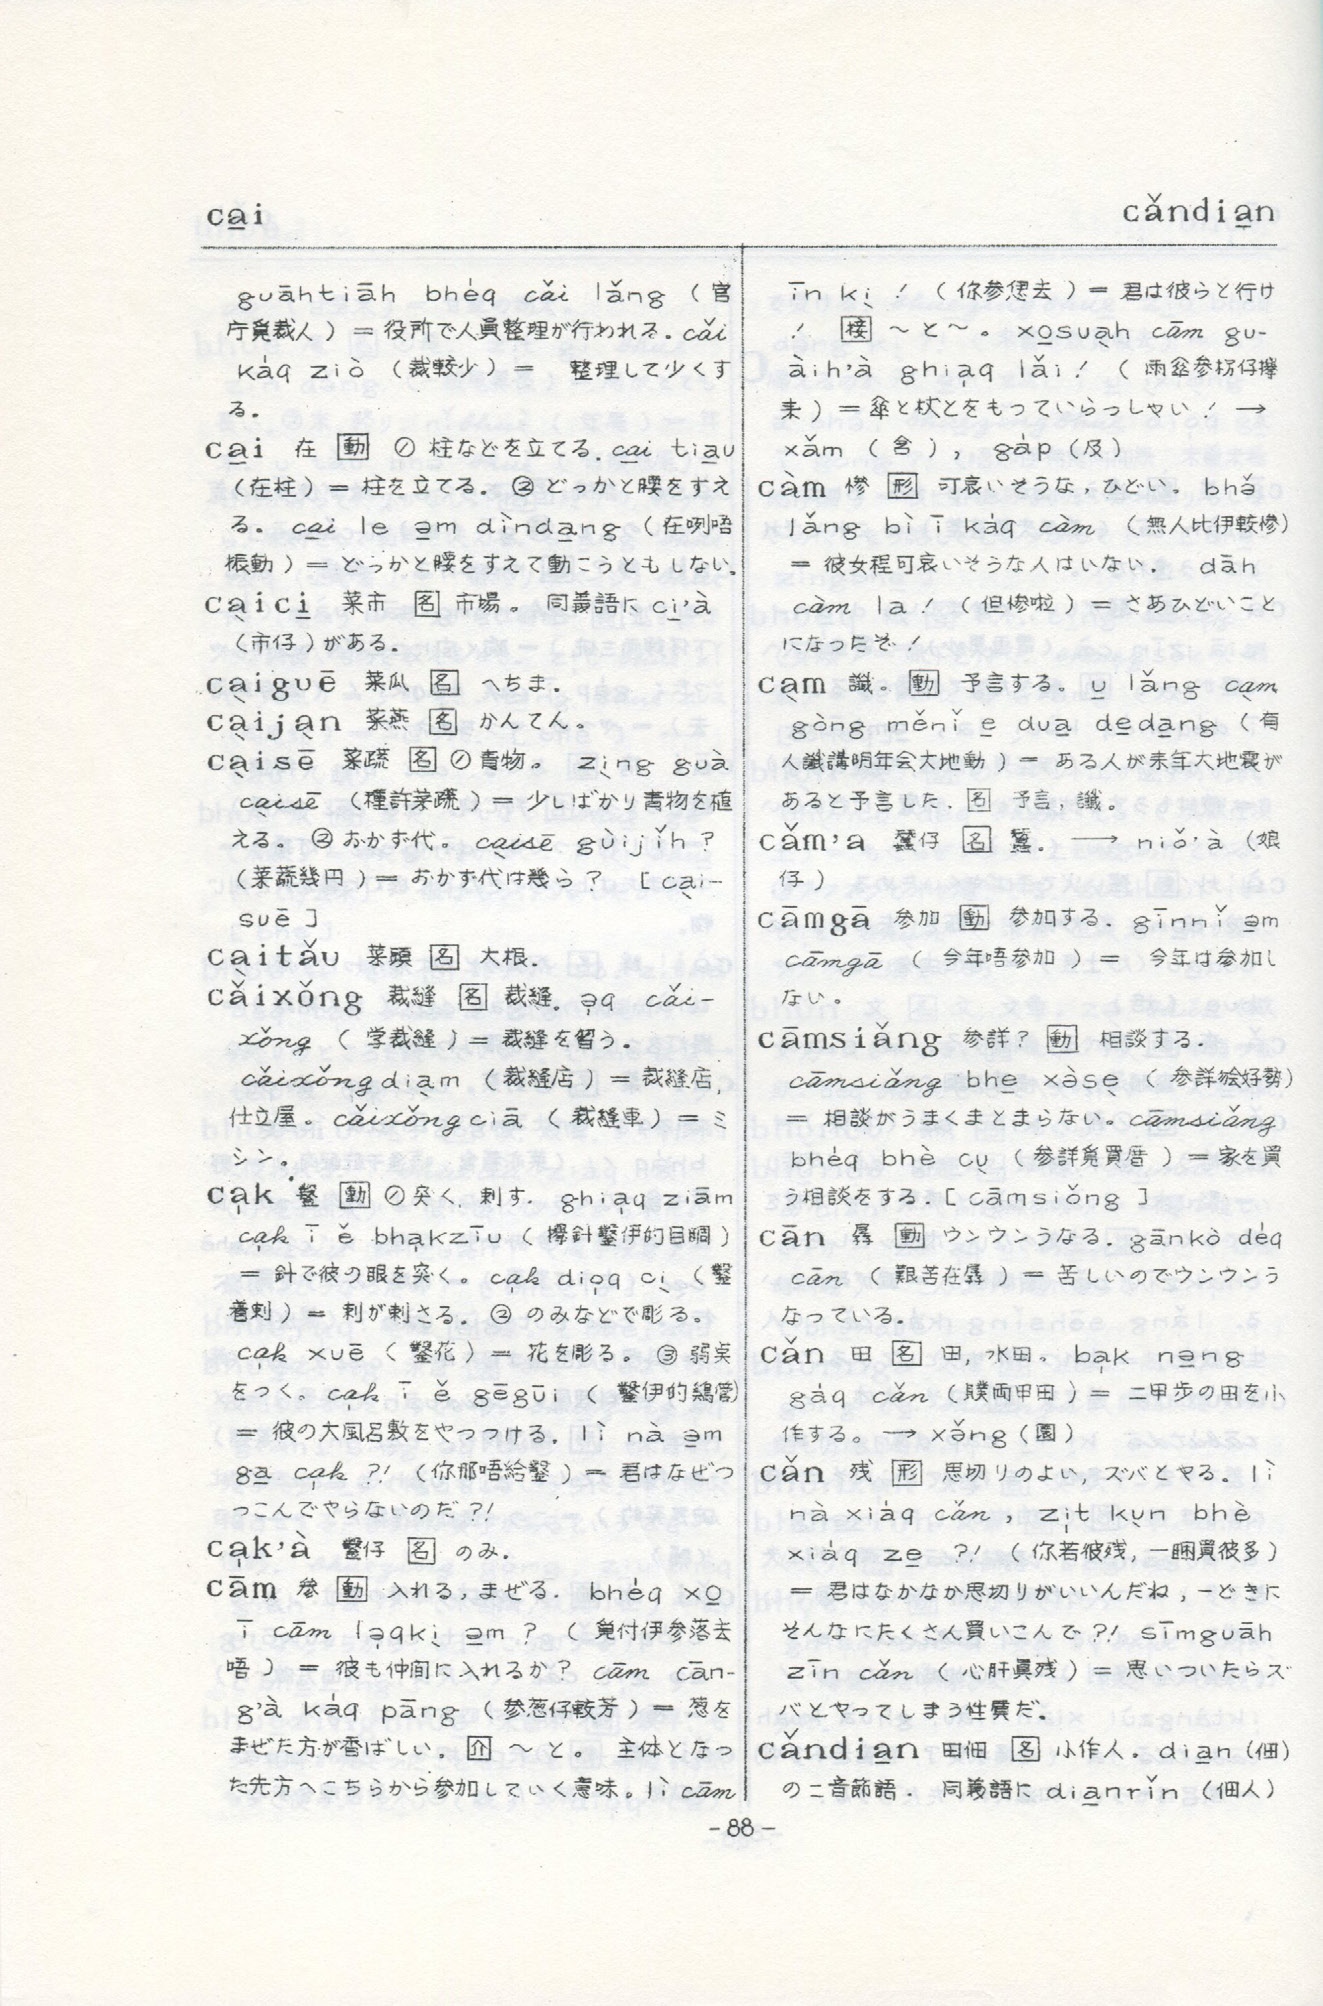 ca̱i
cǎndia̱n
guāhtiāh bhe̍q cǎi lǎng (官
庁覓裁人)＝役所で人員整理が行われる. cǎi
ka̍q ziò (裁較少)＝ 整理して少くす
る.
ca̱i 在 [動] ① 柱などを立てる. ca̱i tia̱u
(在柱)＝柱を立てる. ② どっかと腰をすえ
る. ca̱i le ə̱m dìnda̱ng (在咧唔
振動)＝どっかと腰をすえて動こうともしない.
ca̖ici̖ 菜市 [名] 市場。 同義語に ci'à
(市仔)がある.
ca̖iguē 菜瓜 [名] へちま.
ca̖ija̖n 菜燕 [名] かんてん。
ca̖isē 菜蔬 [名] ① 青物。 zi̖ng guà
ca̖isē (種許菜蔬)＝少しばかり青物を植
える。 ② おかず代。 ca̖isē gùijǐh?
(菜蔬幾円)＝おかず代は幾ら? [ca̖i-
suē]
ca̖itǎu 菜頭 [名] 大根.
cǎixǒng 裁縫 [名] 裁縫. ə̣q cǎi-
xǒng (学裁縫)＝裁縫を習う.
cǎixǒngdia̖m (裁縫店)＝裁縫店,
仕立屋。 cǎixǒngciā (裁縫車)＝ミ
シン.
cạk 鑿 [動] ① 突く, 刺す. ghiạq ziām
cạk ī ě bhạkziu (攑針鑿伊的目睭)
＝針で彼の眼を突く。 cạk diọq ci̖ (鑿
着刺)＝刺が刺さる. ② のみなどで彫る.
cạk xuē (鑿花)＝花を彫る. ③ 弱点
をつく. cạk ī ě gēgūi (鑿伊的鶏胿)
＝彼の大風呂敷をやっつける. lì nà ə̱m
ga̱ cạk ?! (你那唔給鑿)＝君はなぜつ
っこんでやらないのだ?!
cạk'à 鑿仔 [名] のみ.
cām 參 [動] 入れる, まぜる. bhe̍q xo̱
ī cām lạqki̖ ə̱m? (覓付伊参落去
唔)＝彼も仲間に入れるか? cām cān-
g'à ka̍q pāng (参葱仔較芳)＝葱を
まぜた方が香ばしい. [介] ～と。 主体となっ
た先方へこちらから参加していく意味。lì cām
īn ki̖! (你参怹去)＝君は彼らと行け
! [接] ～と～。 xo̱sua̖h cām gu-
àih'à ghiạq lǎi! (雨傘参枴仔攑
来)＝傘と杖とをもっていらっしゃい! →
xǎm (含), ga̍p (及)
càm 惨 [形] 可哀いそうな, ひどい. bhǒ
lǎng bì ī ka̍q càm (無人比伊較惨)
＝彼女程可哀いそうな人はいない. dāh
càm la! (但惨啦)＝さあひどいこと
になったぞ!
ca̖m 讖. [動] 予言する. u̱ lǎng ca̖m
gòng měnǐ e dua̱ de̱da̱ng (有
人讖講明年会大地動)＝ある人が来年大地震が
あると予言した. [名] 予言, 讖。
cǎm'a 蠶仔 [名] 蚕. → niǒ'à (娘
仔)
cāmgā 参加 [動] 参加する. gīnnǐ ə̱m
cāmgā (今年唔参加)＝ 今年は参加し
ない。
cāmsiǎng 参詳? [動] 相談する.
cāmsiǎng bhe̱ xàse̖ (参詳𣍐好勢)
＝ 相談がうまくまとまらない。cāmsiǎng
bhe̍q bhè cu̖ (参詳覓買厝)＝家を買
う相談をする. [cāmsiǒng]
cān 孱 [動] ウンウンうなる. gānkò de̍q
cān (艱苦在孱)＝苦しいのでウンウンう
なっている.
cǎn 田 [名] 田, 水田. bạk nə̱ng
ga̍q cǎn (贌両甲田)＝二甲歩の田を小
作する。→ xə̌ng (園)
cǎn 残 [形] 思切りのよい, ズバとやる. lì
nà xia̍q cǎn, zịt ku̖n bhè
xia̍q ze̱ ?! (你若彼残, 一睏買彼多)
＝君はなかなか思切りがいいんだね, 一どきに
そんなにたくさん買いこんで?! sīmguāh
zīn cǎn (心肝真残)＝思いついたらズ
バとやってしまう性質だ.
cǎndia̱n 田佃 [名] 小作人. dia̱n (佃)
の二音節語. 同義語に dia̱nrǐn (佃人)
-88-